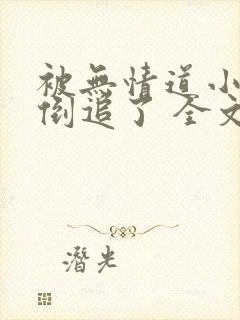 被無情道小
倒追了 全文
潛光